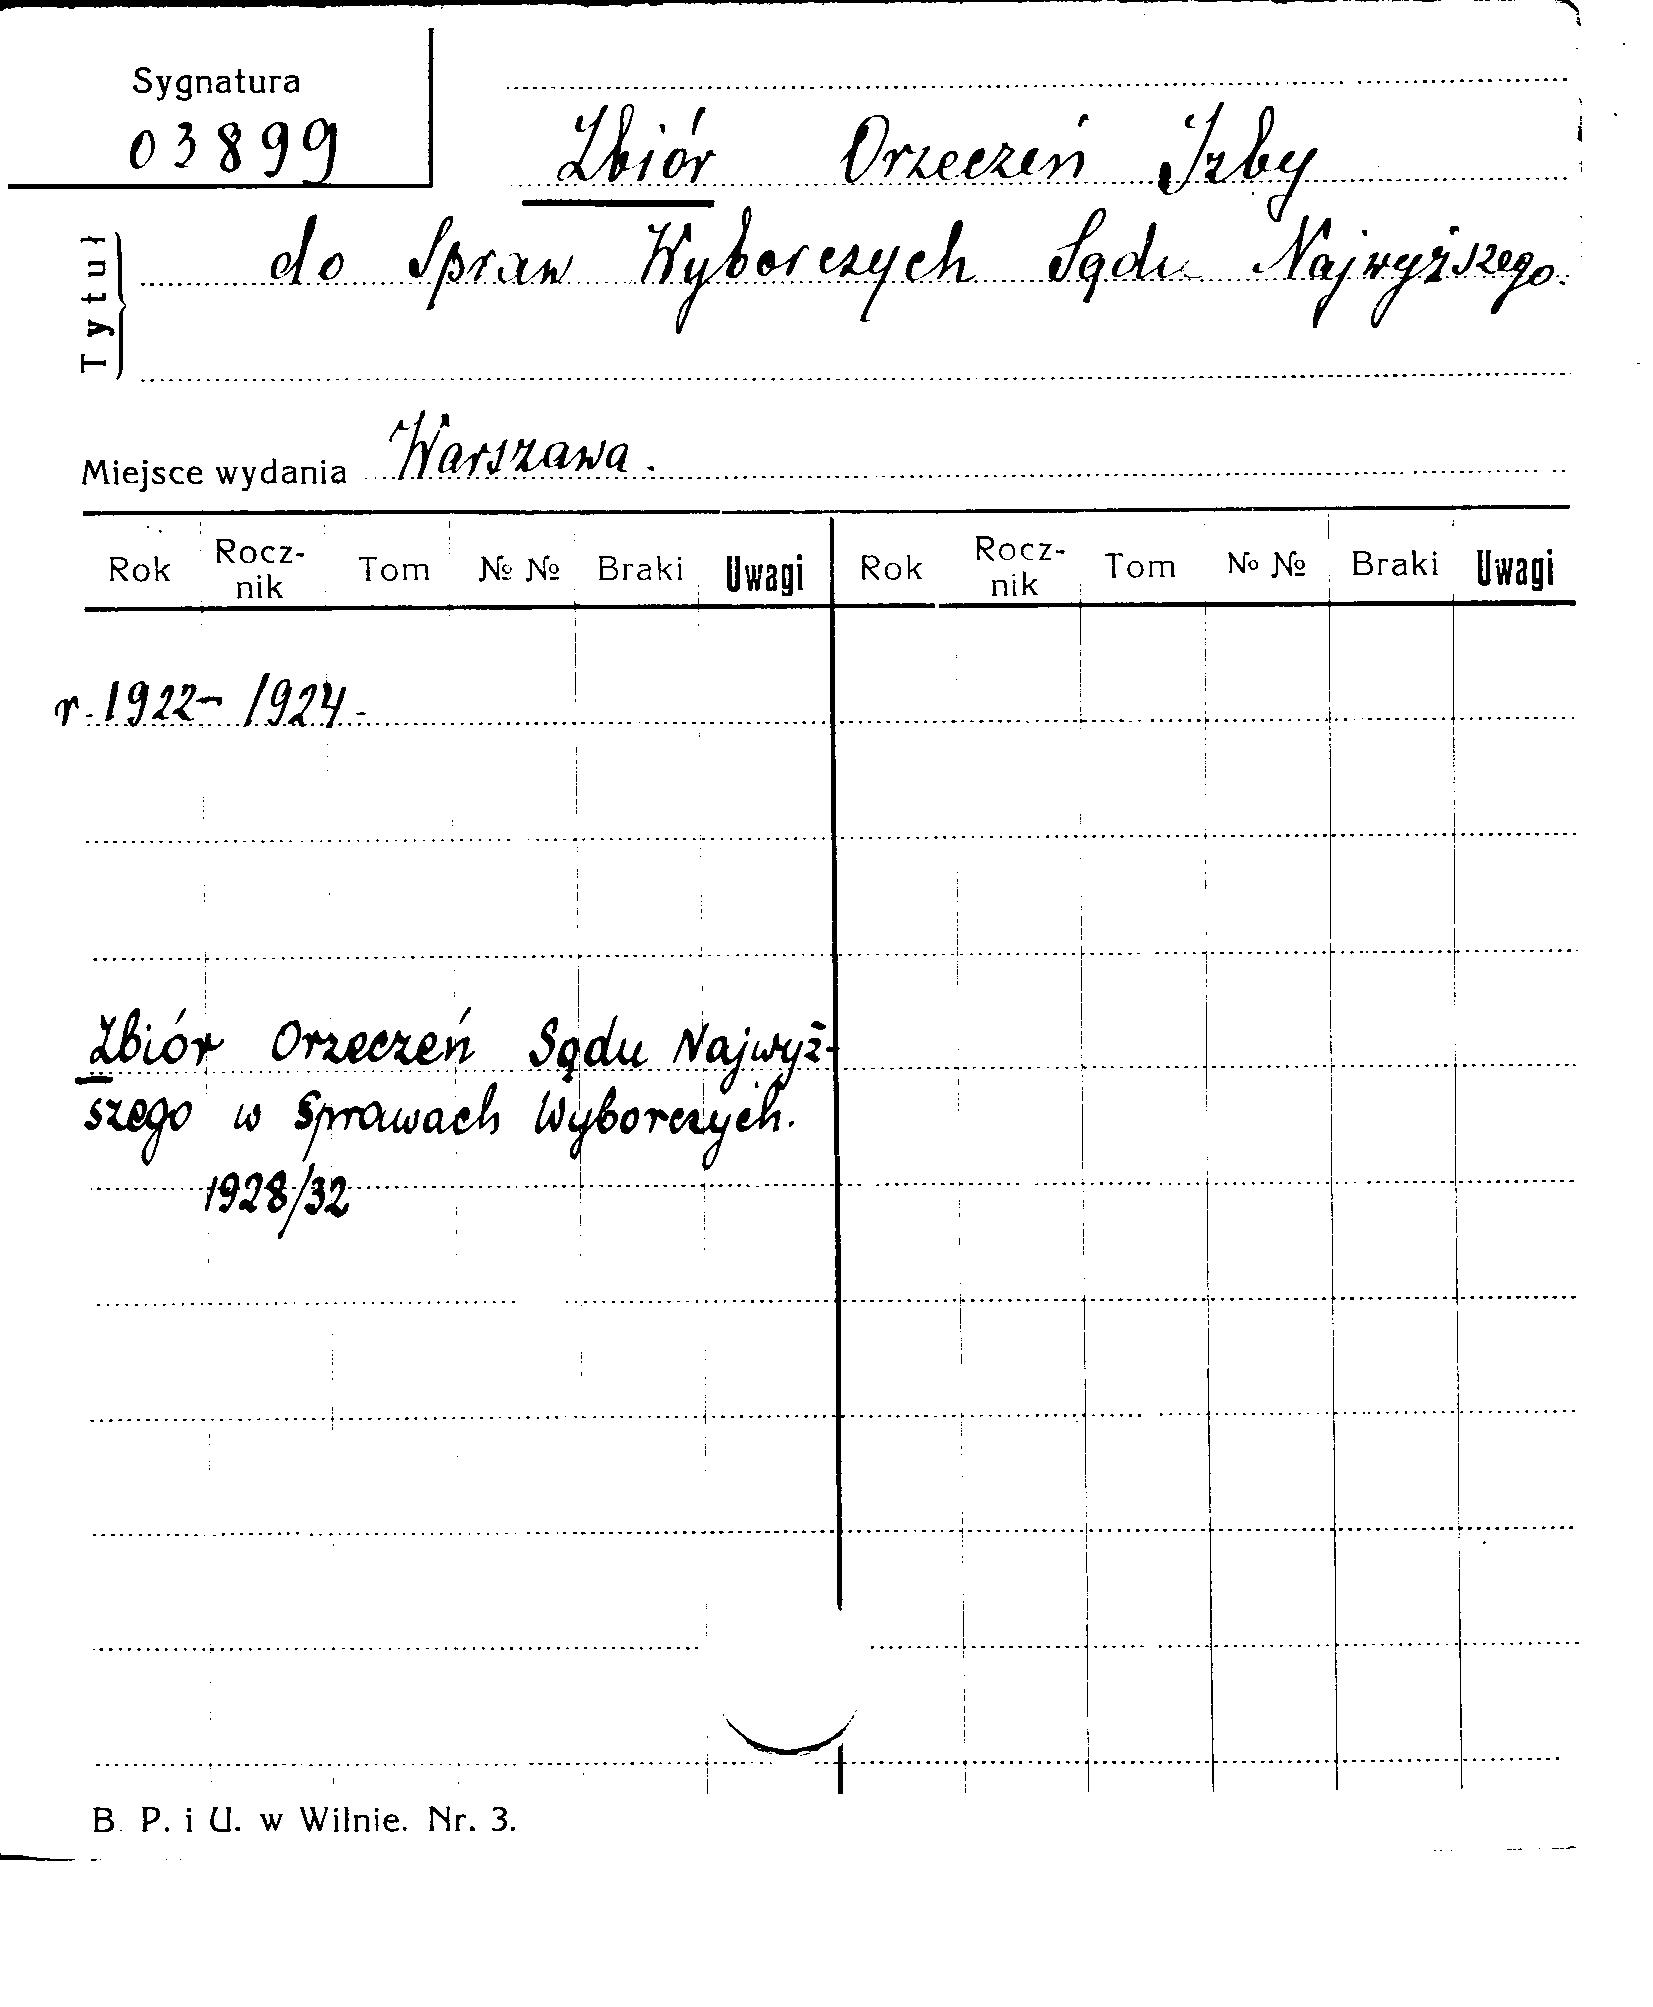 Sygnatura
03899
Zbiór Orzeczeń Izby
do Spraw Wyborczych Sądu Najwyższego.
Tytuł
Miejsce wydania Warszawa.
Rok Rocz- Tom № № Braki Uwagi Rok Rocz- Tom № № Braki Uwagi
nik nik
r. 1922 - 1924 -
Zbiór Orzeczeń Sądu Najwyż-
szego w Sprawach Wyborczych.
1928/32
B. P. i U. w Wilnie. Nr. 3.